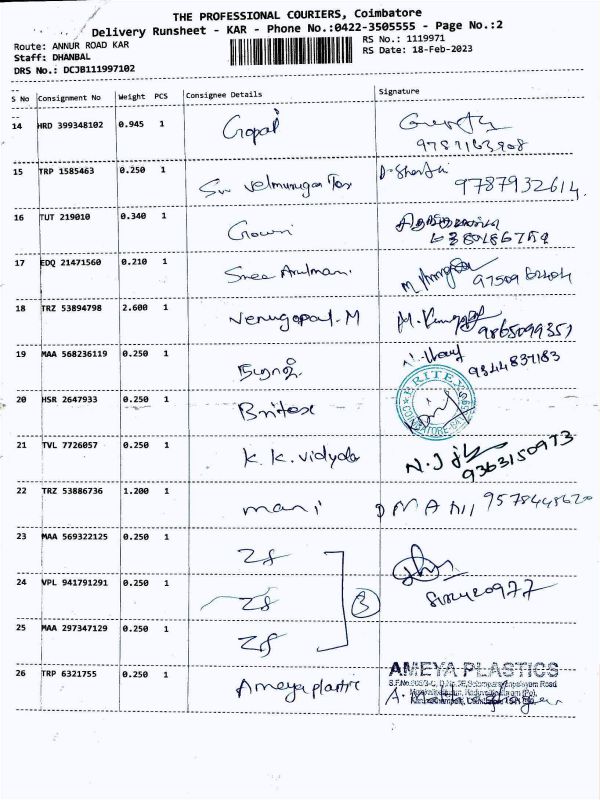 THE PROFESSIONAL COURIERS, Coimbatore
Delivery Runsheet - KAR - Phone No.:0422-3505555 - Page No.:2
Route: ANNUR ROAD KAR
RS No.: 1119971
Staff: DHANBAL
RS Date: 18-Feb-2023
DRS No.: DCJB111997102
S No Consignment No Weight PCS Consignee Details Signature
14 HRD 399348102 0.945 1 Gopal
15 TRP 1585463 0.250 1 Sri Velmurugan Tex 9787932614
16 TUT 219010 0.340 1 Crown
17 EDQ 21471560 0.210 1 Sree Arulmani
18 TRZ 53894798 2.600 1 Venugopal.M 9865099351
19 MAA 568236119 0.250 1 9344837183
20 HSR 2647933 0.250 1 Britex BRITEX
21 TVL 7726057 0.250 1 K.K. Vidyala 9363150973
22 TRZ 53886736 1.200 1 mani D MANI
23 MAA 569322125 0.250 1
24 VPL 941791291 0.250 1 3
25 MAA 297347129 0.250 1
26 TRP 6321755 0.250 1 Ameya plastic AMEYA PLASTICS